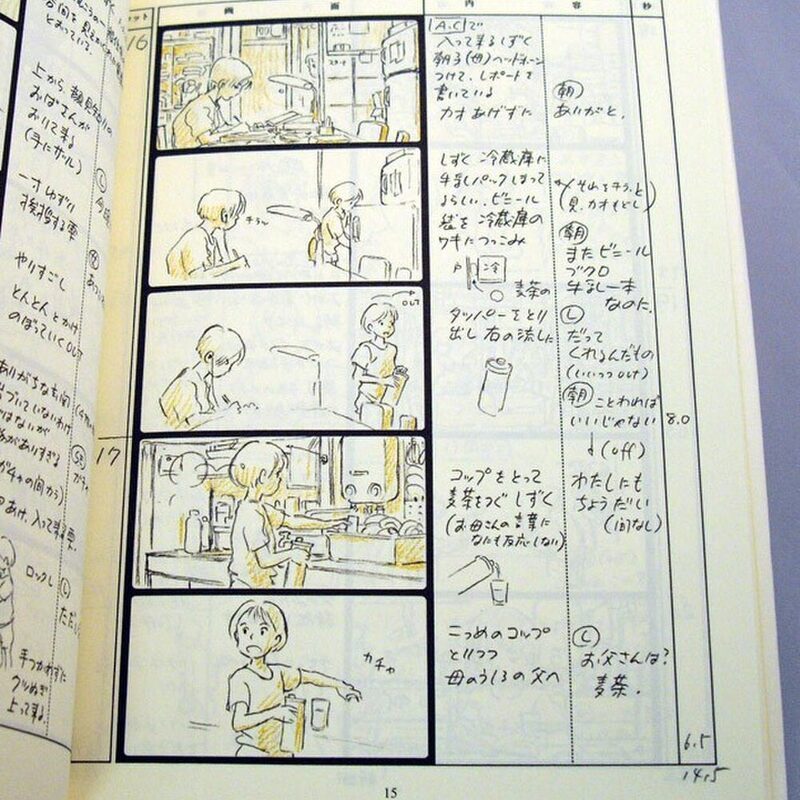 カット
画
面
内
容
秒
16
A.Cで
入って来るしずく
朝子(母)ヘッドホーン
つけて、レポートを
書いている
カオあげずに
朝
ありがと。
しずく 冷蔵庫に
牛乳パックしまって
るらしい、ビニール
袋を冷蔵庫の
ワキにつっこみ
冷
麦茶の
タッパーをとり
出し 右の流しに
それをチラッと
見、カオもどし
朝
またビニール
ブクロ
牛乳一本
なのに、
し
だって
くれるんだもの
(いいつつOUT)
朝
ことわれば
いいじゃない
(off)
8.0
チラ〜
OUT
17
コップをとって
麦茶をつぐ しずく
(お母さんの言葉に
なにも反応しない)
わたしにも
ちょうだい
(間なし)
二つめのコップ
とりつつ
母のうしろの父へ
し
お父さんは?
麦茶.
カチャ
6.5
14.5
15
とまっている。
上から、顔見知りの
おばさんが
おりて来る
(手にザル)
一寸ゆずり
挨拶する雫
やりすごし
とんとんとかけ
のぼっていくOUT
入って来る雫.
ロックし
手つかわずに
クツぬぎ
上って来る.